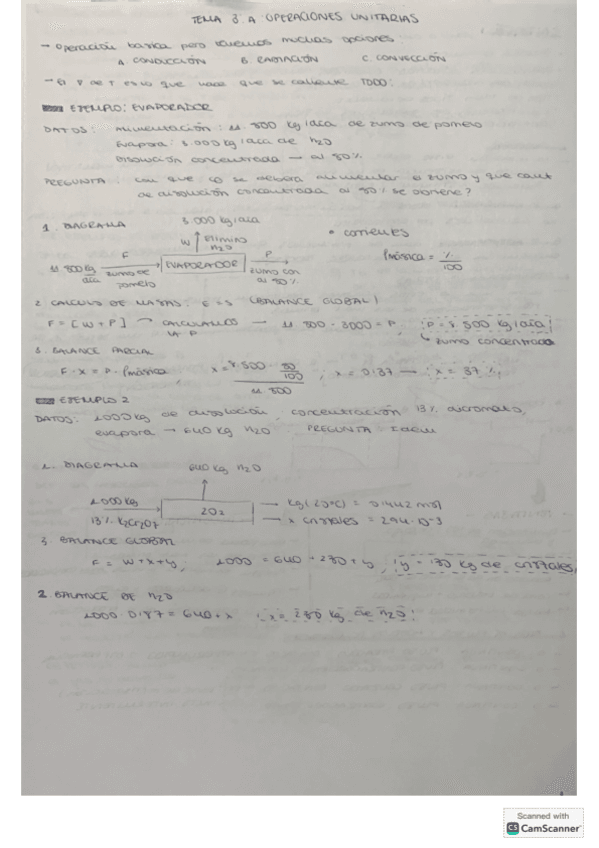 TEMA 3 A OPERACIONES UNITARIAS
→ Operación básica pero tenemos muchas opciones
A. CONDUCCIÓN B. RADIACIÓN C. CONVECCIÓN
→ El de T es lo que hace que se caliente TODO:
EJEMPLO: EVAPORADOR
DATOS: Alimentación: 11 500 kg/día de zumo de pomelo
Evapora: 3.000 kg/día de H2O
Disolución concentrada → al 50%
PREGUNTA: con que se deberá alimentar zumo y que cant
de disolución concentrada al 50% se obtiene?
1. DIAGRAMA 3.000 kg/día
W elimino H2O
* corrientes
Pmásica = %/100
11 500 kg/día F zumo de pomelo EVAPORADOR P zumo con al 50%
2. CALCULO DE MASAS: E = S (BALANCE GLOBAL)
F = [W + P] → calculamos la P → 11 500 - 3000 = P, P = 8.500 kg/día
zumo concentrado
3. BALANCE PARCIAL
F · x = P · Pmásica x = 8.500 · 50/100 / 11 500 ; x = 0'37 → x = 37%
EJEMPLO 2
DATOS: 1000 kg de disolución, concentración 13% dicromato,
evapora → 640 kg H2O PREGUNTA: Idem
1. DIAGRAMA 640 kg H2O
1000 kg → kg (20ºC) = 0'442 mol
13% K2Cr2O7 → x cristales = 294·10-3
3. BALANCE GLOBAL
F = W + x + y, 1000 = 640 + 230 + y, y = 130 kg de cristales
2. BALANCE DE H2O
1000 · 0'87 = 640 + x x = 230 kg de H2O
Scanned with
CS CamScanner